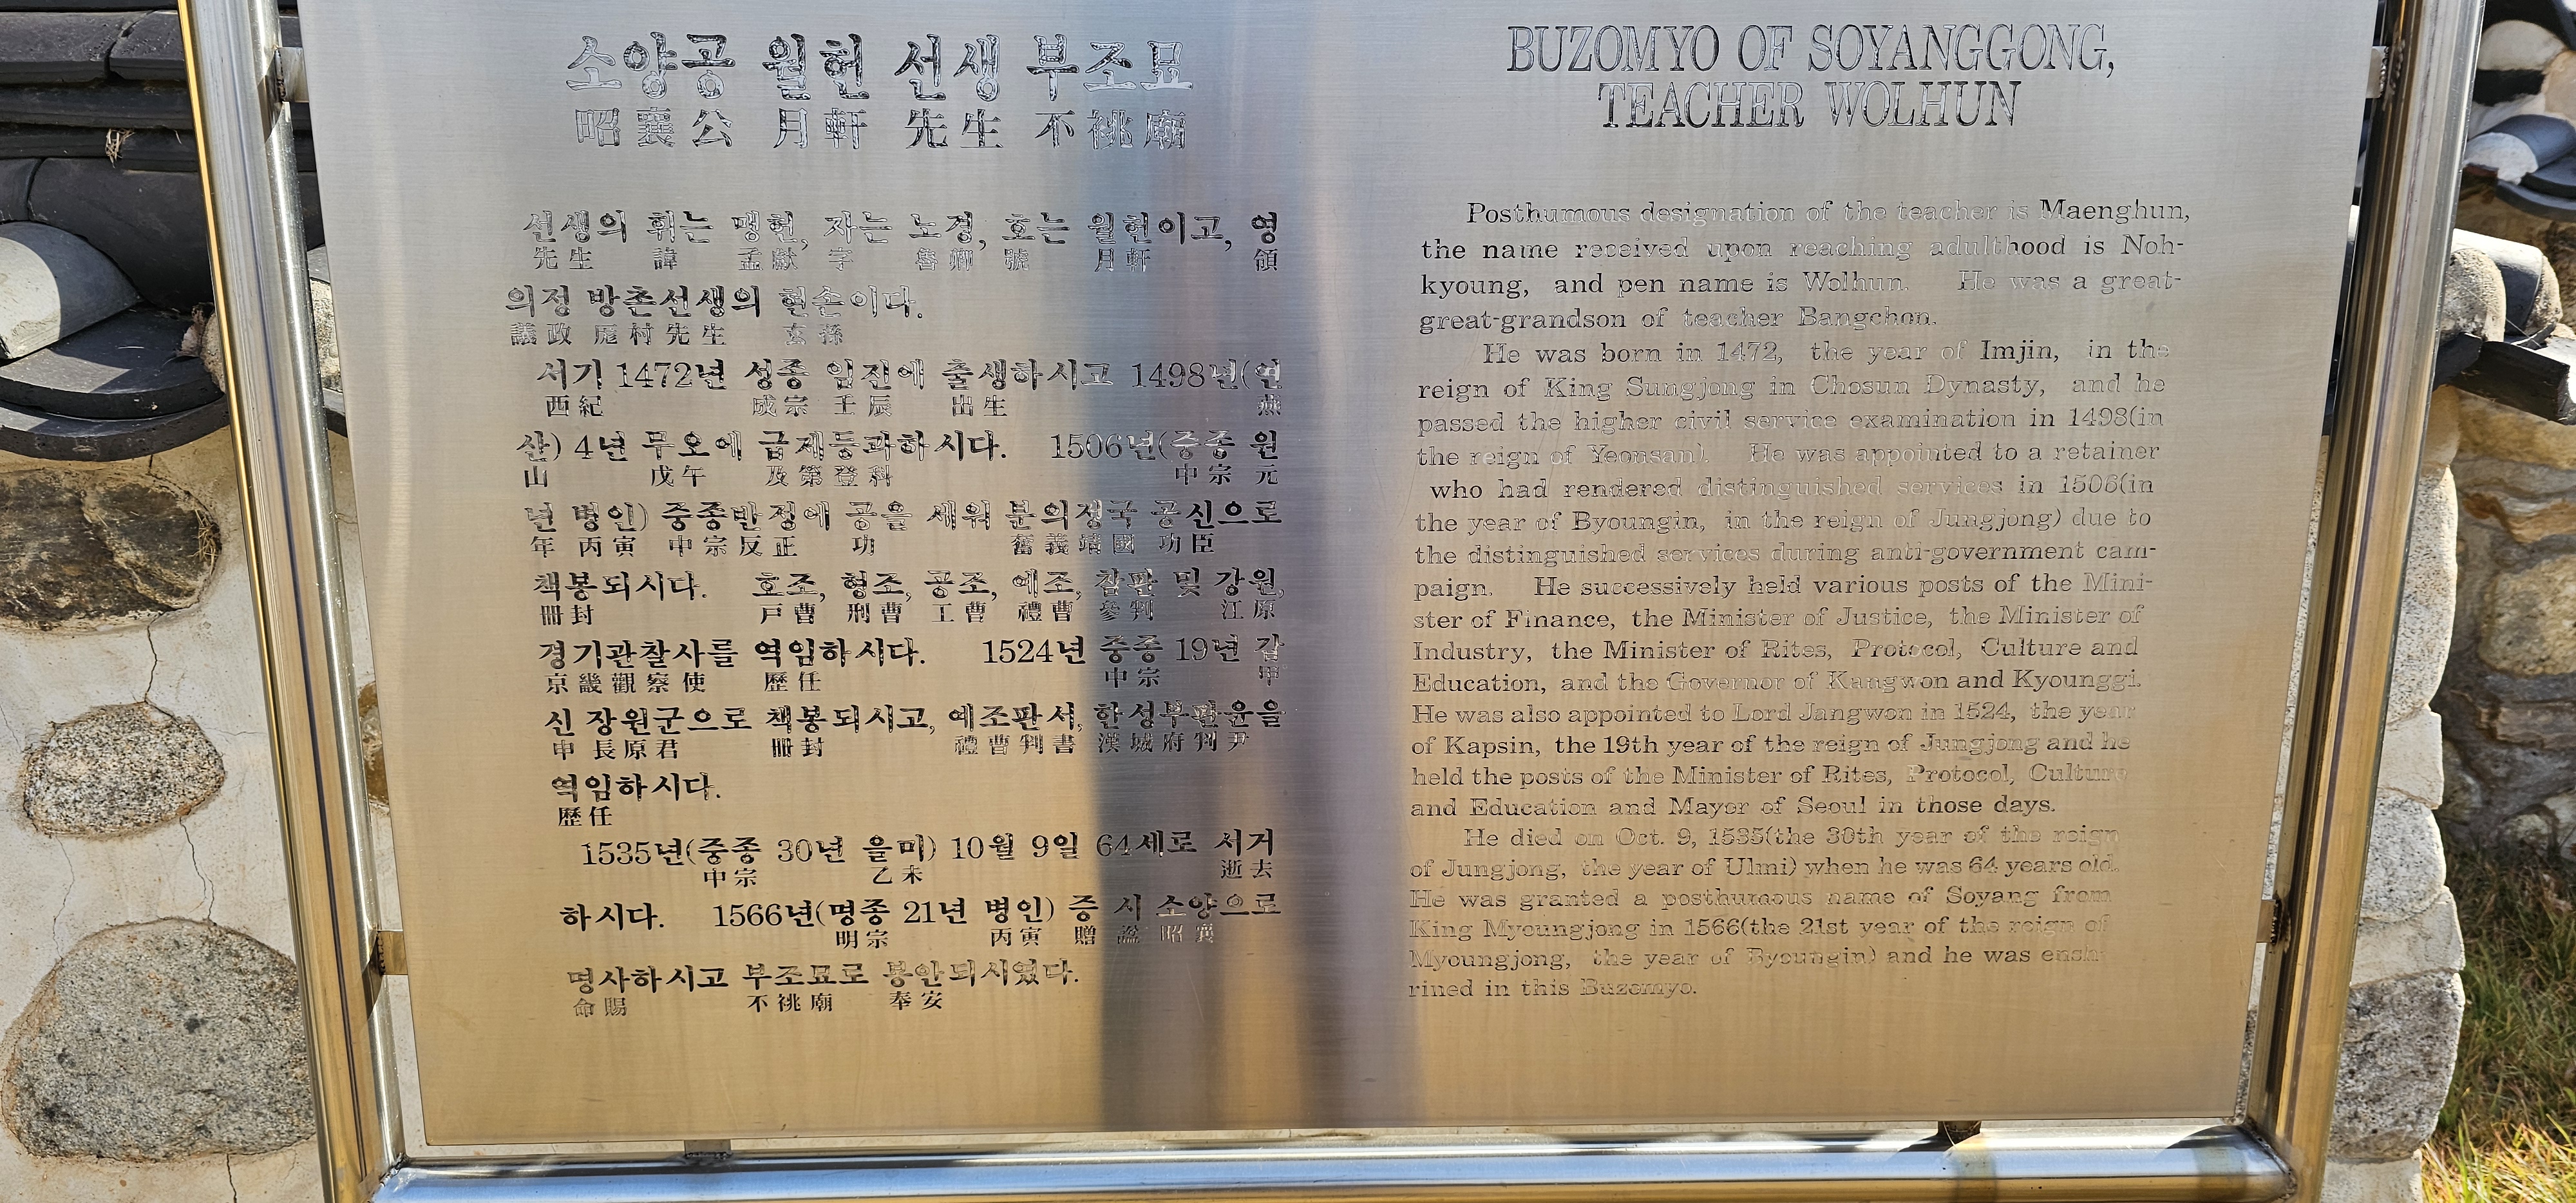 소양공 월헌 선생 부조묘
昭襄公 月軒 先生 不祧廟
선생의 휘는 맹헌, 자는 노경, 호는 월헌이고, 영
先生 諱 孟獻 字 魯卿 號 月軒 領
의정 방촌선생의 현손이다.
議政 厖村先生 玄孫
서기 1472년 성종 임진에 출생하시고 1498년(연
西紀 成宗 壬辰 出生 燕
산) 4년 무오에 급제등과하시다. 1506년(중종 원
山 戊午 及第登科 中宗 元
년 병인) 중종반정에 공을 세워 분의정국 공신으로
年 丙寅 中宗反正 功 奮義靖國 功臣
책봉되시다. 호조, 형조, 공조, 예조, 참판 및 강원,
冊封 戶曹 刑曹 工曹 禮曹 參判 江原
경기관찰사를 역임하시다. 1524년 중종 19년 갑
京畿觀察使 歷任 中宗 甲
신 장원군으로 책봉되시고, 예조판서, 한성부판윤을
申 長原君 冊封 禮曹判書 漢城府判尹
역임하시다.
歷任
1535년(중종 30년 을미) 10월 9일 64세로 서거
中宗 乙未 逝去
하시다. 1566년(명종 21년 병인) 증 시 소양으로
明宗 丙寅 贈 諡 昭襄
명사하시고 부조묘로 봉안되시었다.
命賜 不祧廟 奉安
BUZOMYO OF SOYANGGONG,
TEACHER WOLHUN
Posthumous designation of the teacher is Maenghun,
the name received upon reaching adulthood is Noh-
kyoung, and pen name is Wolhun. He was a great-
great-grandson of teacher Bangchon.
He was born in 1472, the year of Imjin, in the
reign of King Sungjong in Chosun Dynasty, and he
passed the higher civil service examination in 1498(in
the reign of Yeonsan). He was appointed to a retainer
who had rendered distinguished services in 1506(in
the year of Byoungin, in the reign of Jungjong) due to
the distinguished services during anti-government cam-
paign. He successively held various posts of the Mini-
ster of Finance, the Minister of Justice, the Minister of
Industry, the Minister of Rites, Protocol, Culture and
Education, and the Governor of Kangwon and Kyounggi.
He was also appointed to Lord Jangwon in 1524, the year
of Kapsin, the 19th year of the reign of Jungjong and he
held the posts of the Minister of Rites, Protocol, Culture
and Education and Mayor of Seoul in those days.
He died on Oct. 9, 1535(the 30th year of the reign
of Jungjong, the year of Ulmi) when he was 64 years old.
He was granted a posthumous name of Soyang from
King Myoungjong in 1566(the 21st year of the reign of
Myoungjong, the year of Byoungin) and he was ensh-
rined in this Buzomyo.